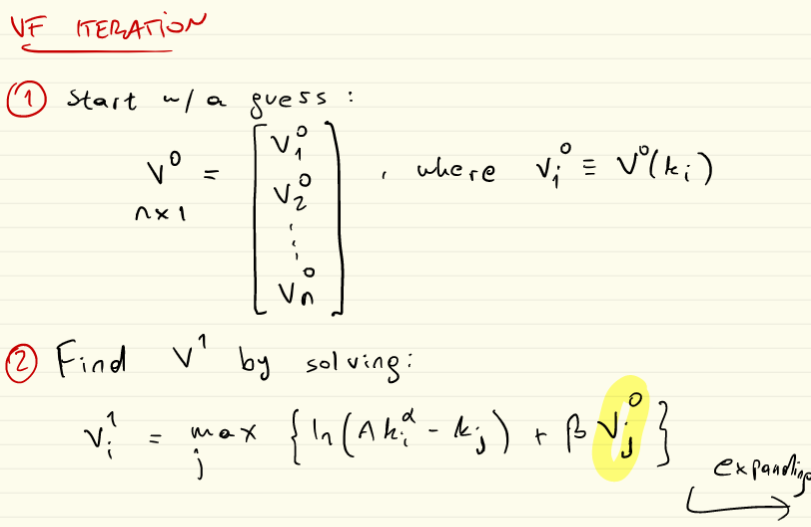 VF ITERATION
① Start w/ a guess :
V⁰ = [V₁⁰ V₂⁰ ⋮ Vₙ⁰] , where Vᵢ⁰ ≡ V⁰(kᵢ)
n×1
② Find V¹ by solving:
Vᵢ¹ = max_j { ln(A kᵢ^α - kⱼ) + β Vⱼ⁰ }
expanding